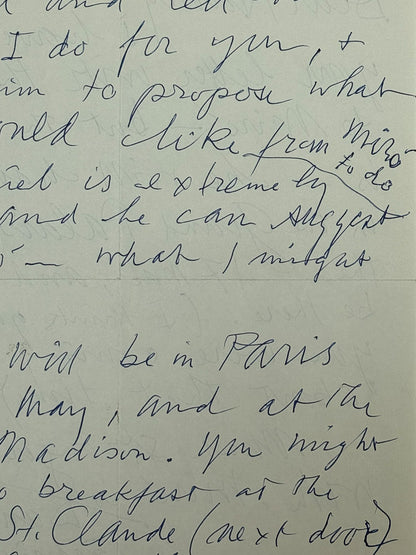 and tell
I do for you, +
im to propose what
ould like from Miró
to do
iel is extremely
and he can suggest
ó — what I might
Will be in Paris
May, and at the
Madison. You might
o breakfast at the
St. Claude (next door)